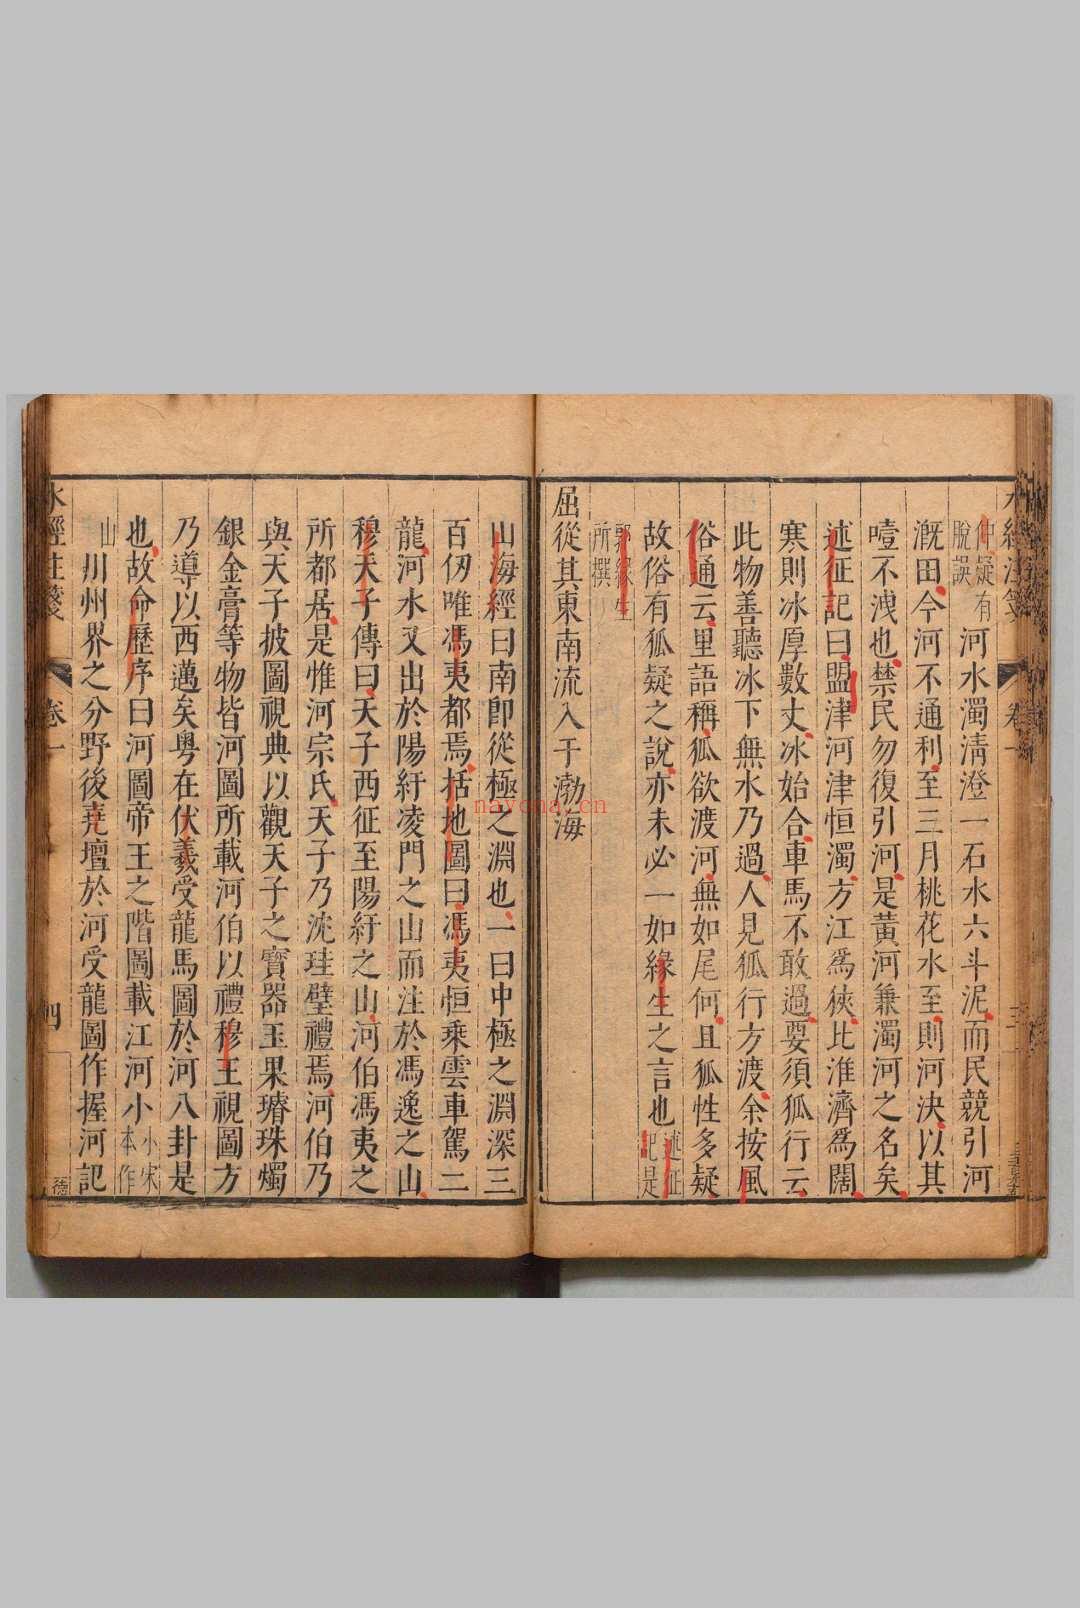 水經注箋 卷一
仲疑有
脫誤
河水濁清澄一石水六斗泥而民競引河
溉田今河不通利至三月桃花水至則河決以其
噎不洩也禁民勿復引河是黃河兼濁河之名矣
述征記曰盟津河津恒濁方江為狹比淮濟為闊
寒則冰厚數丈冰始合車馬不敢過要須狐行云
此物善聽冰下無水乃過人見狐行方渡余按風
俗通云里語稱狐欲渡河無如尾何且狐性多疑
故俗有狐疑之說亦未必一如緣生之言也
述征
記是
郭緣生
所撰
屈從其東南流入于渤海
山海經曰南卽從極之淵也一曰中極之淵深三
百仞唯馮夷都焉括地圖曰馮夷恒乘雲車駕二
龍河水又出於陽紆凌門之山而注於馮逸之山
穆天子傳曰天子西征至陽紆之山河伯馮夷之
所都居是惟河宗氏天子乃沈珪璧禮焉河伯乃
與天子披圖視典以觀天子之寶器玉果璿珠燭
銀金膏等物皆河圖所載河伯以禮穆王視圖方
乃導以西邁矣粵在伏羲受龍馬圖於河八卦是
也故命歷序曰河圖帝王之階圖載江河小
小宋
本作
山
川州界之分野後堯壇於河受龍圖作握河記
水經注箋 卷一 四
nayona.cn